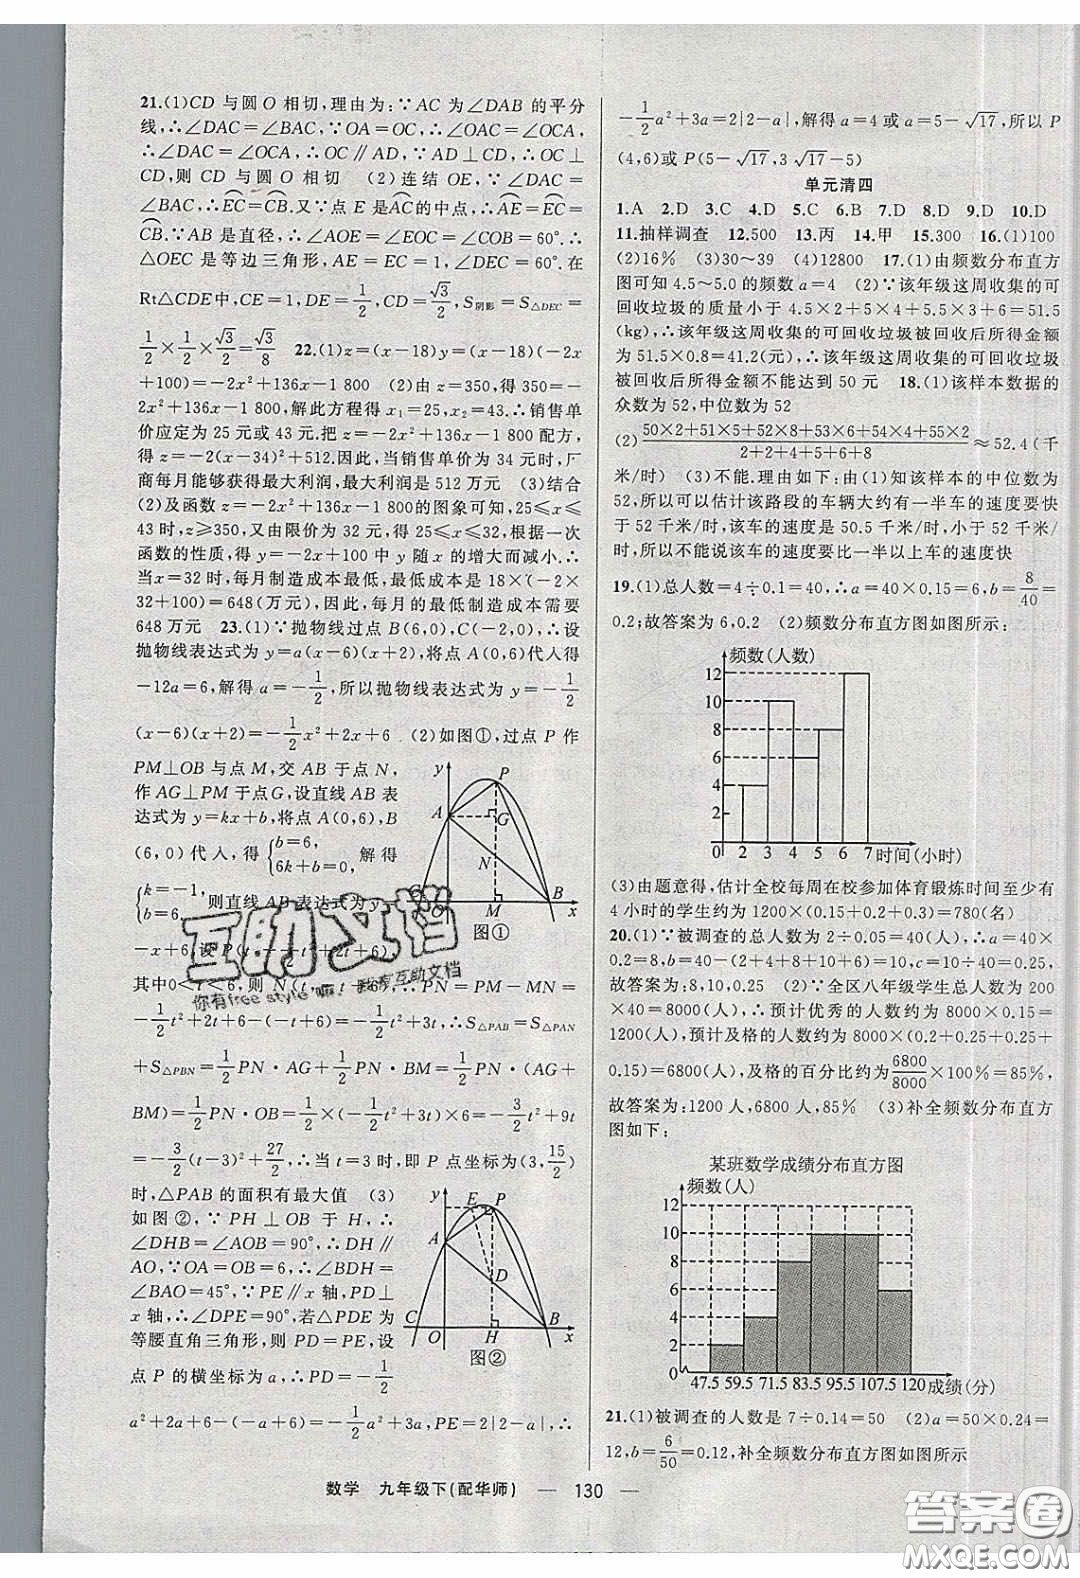 21.(1)CD 与圆 O 相切,理由为:∵AC 为∠DAB 的平分
线,∴∠DAC=∠BAC,∵OA=OC,∴∠OAC=∠OCA,
∴∠DAC=∠OCA,∴OC∥AD,∵AD⊥CD,∴OC⊥
CD,则 CD 与圆 O 相切 (2)连结 OE,∵∠DAC=
∠BAC,∴EC=CB.又∵点 E 是AC的中点,∴AE=EC=
CB.∵AB 是直径,∴∠AOE=∠EOC=∠COB=60°.∴
△OEC 是等边三角形,AE=EC=1,∠DEC=60°.在
Rt△CDE中,CE=1,DE=1/2,CD=√3/2,S阴影=S△DEC=
1/2×1/2×√3/2=√3/8 22.(1)z=(x-18)y=(x-18)(-2x
+100)=-2x²+136x-1 800 (2)由 z=350,得 350=
-2x²+136x-1 800,解此方程得 x₁=25,x₂=43.∴销售单
价应定为 25 元或 43 元.把 z=-2x²+136x-1 800 配方,
得 z=-2(x-34)²+512.因此,当销售单价为 34 元时,厂
商每月能够获得最大利润,最大利润是 512 万元 (3)结合
(2)及函数 z=-2x²+136x-1 800 的图象可知,25≤x≤
43 时,z≥350,又由限价为 32 元,得 25≤x≤32,根据一次
函数的性质,得 y=-2x+100 中 y 随 x 的增大而减小.∴
当 x=32 时,每月制造成本最低,最低成本是 18×(-2×
32+100)=648(万元),因此,每月的最低制造成本需要
648 万元 23.(1)∵抛物线过点 B(6,0),C(-2,0),∴设
抛物线表达式为 y=a(x-6)(x+2),将点 A(0,6)代入得
-12a=6,解得 a=-1/2,所以抛物线表达式为 y=-1/2
(x-6)(x+2)=-1/2x²+2x+6 (2)如图①,过点 P 作
PM⊥OB 与点 M,交 AB 于点 N,
作 AG⊥PM 于点G,设直线 AB 表
达式为 y=kx+b,将点 A(0,6),B
(6,0)代入,得{b=6, 6k+b=0, 解得
{k=-1, b=6, 则直线 AB 表达式为 y=
-x+6,设 P(t,
其中0<t<6,则 N(t,-t+6),∴PN=PM-MN=
-1/2t²+2t+6-(-t+6)=-1/2t²+3t,∴S△PAB=S△PAN
+S△PBN=1/2PN·AG+1/2PN·BM=1/2PN·(AG+
BM)=1/2PN·OB=1/2×(-1/2t²+3t)×6=-3/2t²+9t
=-3/2(t-3)²+27/2,∴当 t=3 时,即 P 点坐标为(3,15/2)
时,△PAB 的面积有最大值 (3)
如图②,∵PH⊥OB 于 H,∴
∠DHB=∠AOB=90°,∴DH∥
AO,∵OA=OB=6,∴∠BDH=
∠BAO=45°,∵PE∥x 轴,PD⊥
x 轴,∴∠DPE=90°,若△PDE 为
等腰直角三角形,则 PD=PE,设
点 P 的横坐标为 a,∴PD=-1/2
a²+2a+6-(-a+6)=-1/2a²+3a,PE=2|2-a|,∴
y
P
A
G
N
C
O
M
B
x
图①
y
E
P
A
D
C
O
H
B
x
图②
-1/2a²+3a=2|2-a|,解得 a=4 或 a=5-√17,所以 P
(4,6)或 P(5-√17,3√17-5)
单元清四
1.A 2.D 3.C 4.D 5.C 6.B 7.D 8.D 9.D 10.D
11.抽样调查 12.500 13.丙 14.甲 15.300 16.(1)100
(2)16% (3)30~39 (4)12800 17.(1)由频数分布直方
图可知 4.5~5.0 的频数 a=4 (2)∵该年级这周收集的可
回收垃圾的质量小于 4.5×2+5×4+5.5×3+6=51.5
(kg),∴该年级这周收集的可回收垃圾被回收后所得金额
为 51.5×0.8=41.2(元),∴该年级这周收集的可回收垃圾
被回收后所得金额不能达到 50 元 18.(1)该样本数据的
众数为 52,中位数为 52
(2)(50×2+51×5+52×8+53×6+54×4+55×2)/(2+2+4+5+6+8)≈52.4(千
米/时) (3)不能.理由如下:由(1)知该样本的中位数为
52,所以可以估计该路段的车辆大约有一半车的速度要快
于 52 千米/时,该车的速度是 50.5 千米/时,小于 52 千米/
时,所以不能说该车的速度要比一半以上车的速度快
19.(1)总人数=4÷0.1=40,∴a=40×0.15=6,b=8/40=
0.2;故答案为 6,0.2 (2)频数分布直方图如图所示:
频数(人数)
12
10
8
6
4
2
0 2 3 4 5 6 7 时间(小时)
(3)由题意得,估计全校每周在校参加体育锻炼时间至少有
4 小时的学生约为 1200×(0.15+0.2+0.3)=780(名)
20.(1)∵被调查的总人数为 2÷0.05=40(人),∴a=40×
0.2=8,b=40-(2+4+8+10+6)=10,c=10÷40=0.25,
故答案为:8,10,0.25 (2)∵全区八年级学生总人数为 200
×40=8000(人),∴预计优秀的人数约为 8000×0.15=
1200(人),预计及格的人数约为 8000×(0.2+0.25+0.25+
0.15)=6800(人),及格的百分比约为6800/8000×100%=85%,
故答案为:1200 人,6800 人,85% (3)补全频数分布直方
图如下:
某班数学成绩分布直方图
频数(人)
12
10
8
6
4
2
0 47.5 59.5 71.5 83.5 95.5 107.5 120 成绩(分)
21.(1)被调查的人数是 7÷0.14=50 (2)a=50×0.24=
12,b=6/50=0.12,补全频数分布直方图如图所示
数学 九年级下(配华师) — 130 —
互助文档
你有free style嘛? 我有互助文档
答案圈
MXQE.COM